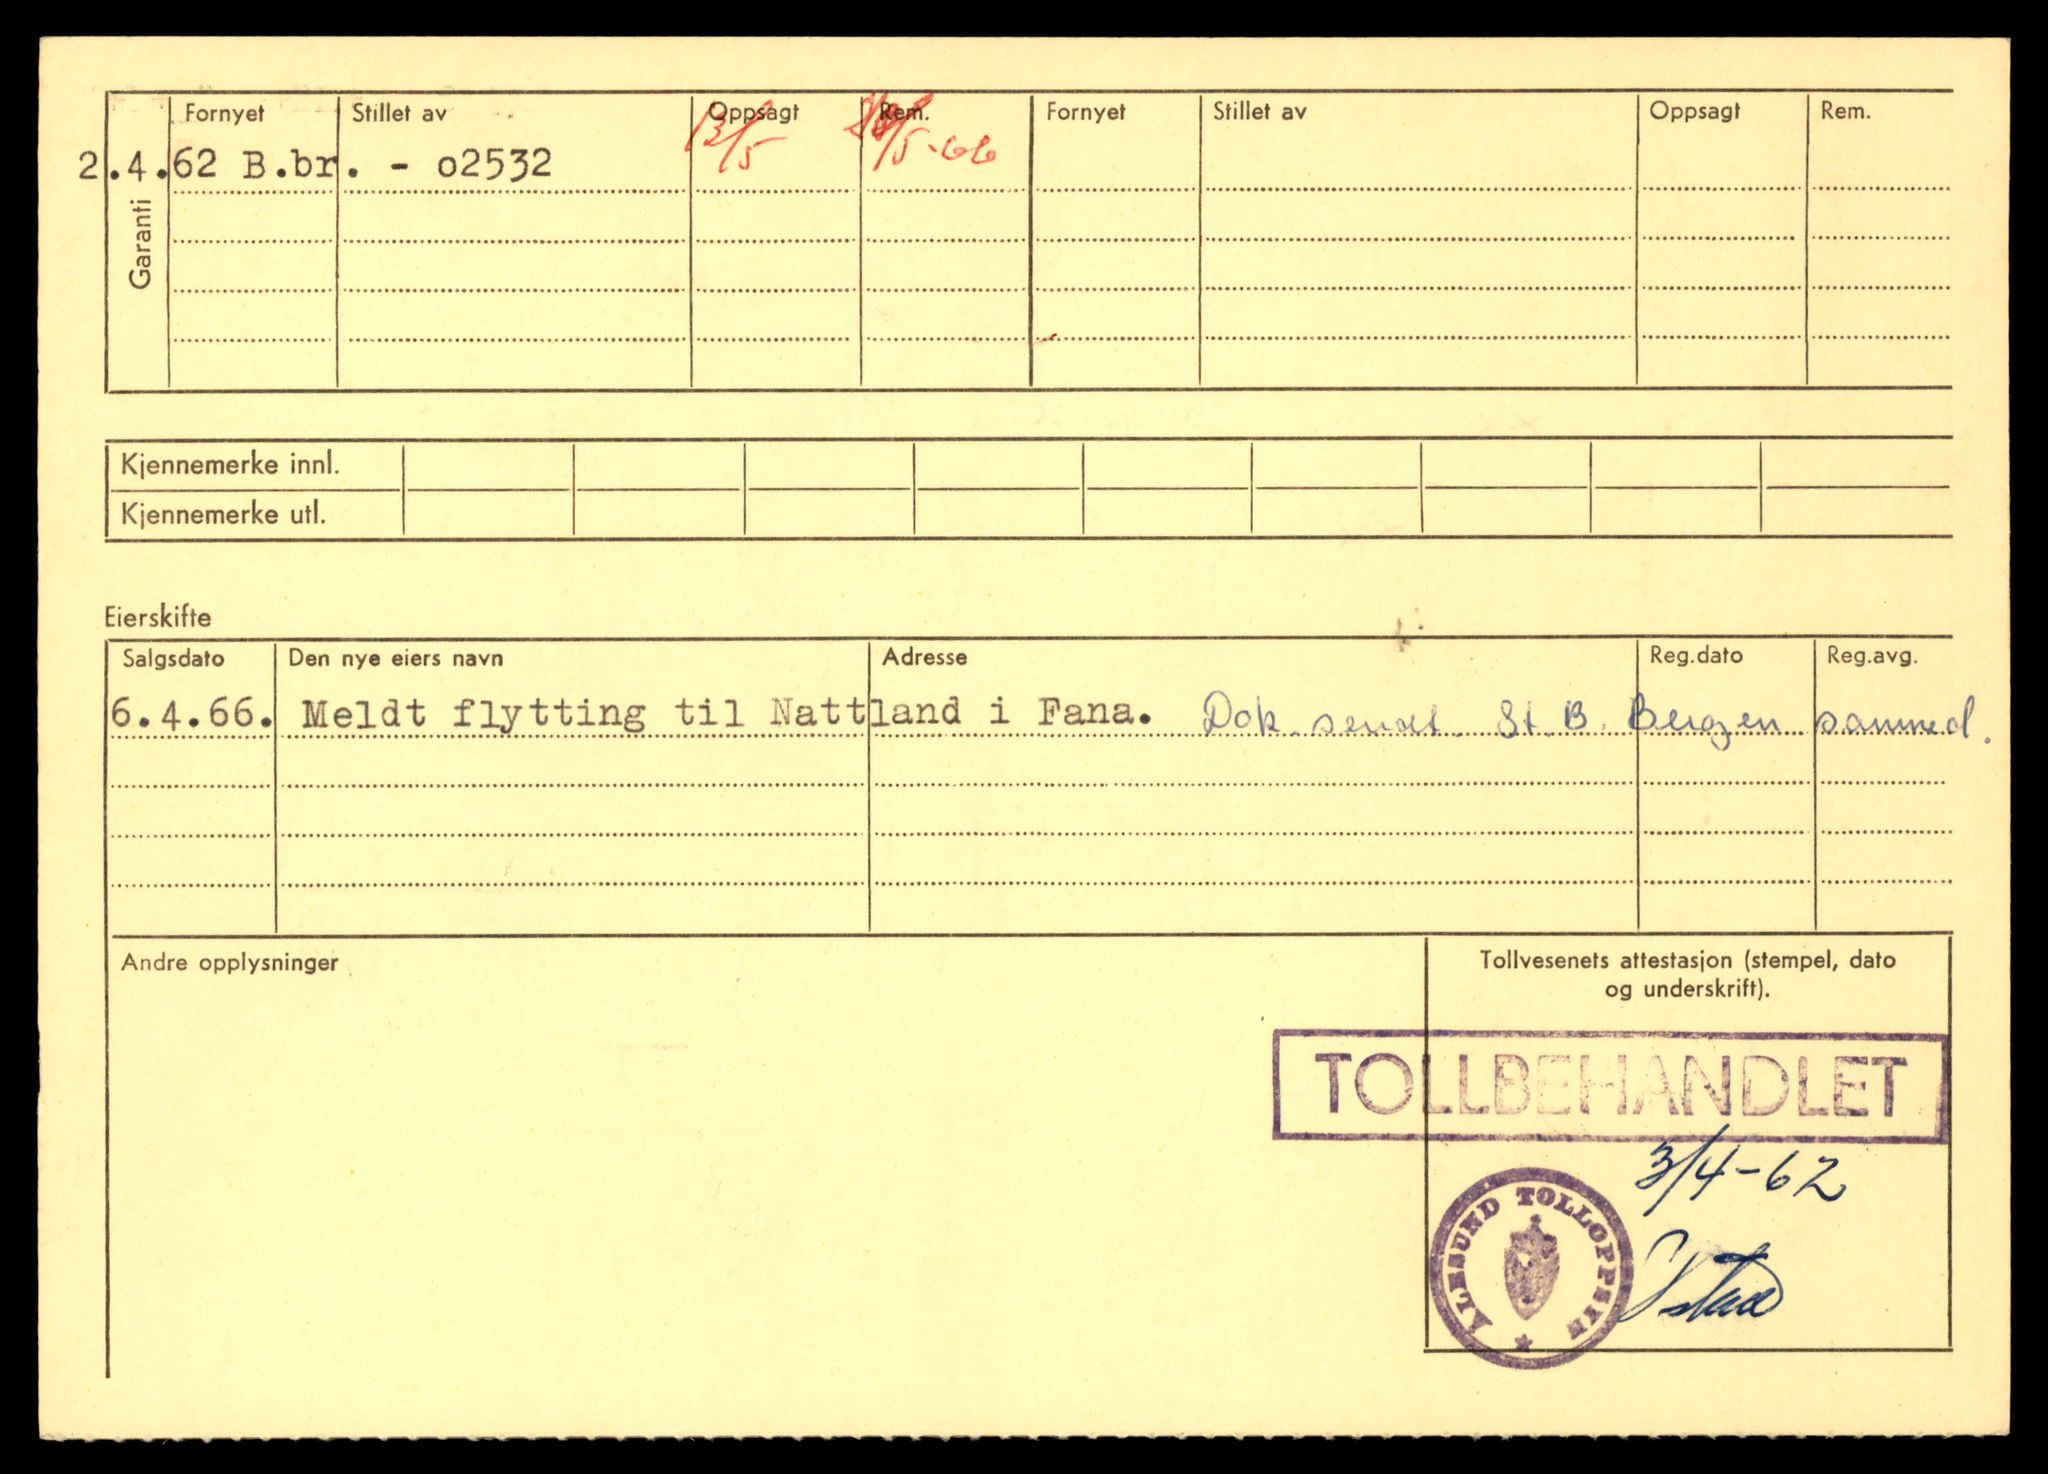 Fornyet Stillet av Oppsagt Rem. Fornyet Stillet av Oppsagt Rem.
2.4.62 B.br. - o2532 12/5 /5-66
Garanti
Kjennemerke innl.
Kjennemerke utl.
Eierskifte
Salgsdato Den nye eiers navn Adresse Reg.dato Reg.avg.
6.4.66. Meldt flytting til Nattland i Fana. Dok. sendt St. B. Bergen sammed.
Andre opplysninger
Tollvesenets attestasjon (stempel, dato
og underskrift).
TOLLBEHANDLET
3/4-62
ÅLESUND TOLLOPPSYN